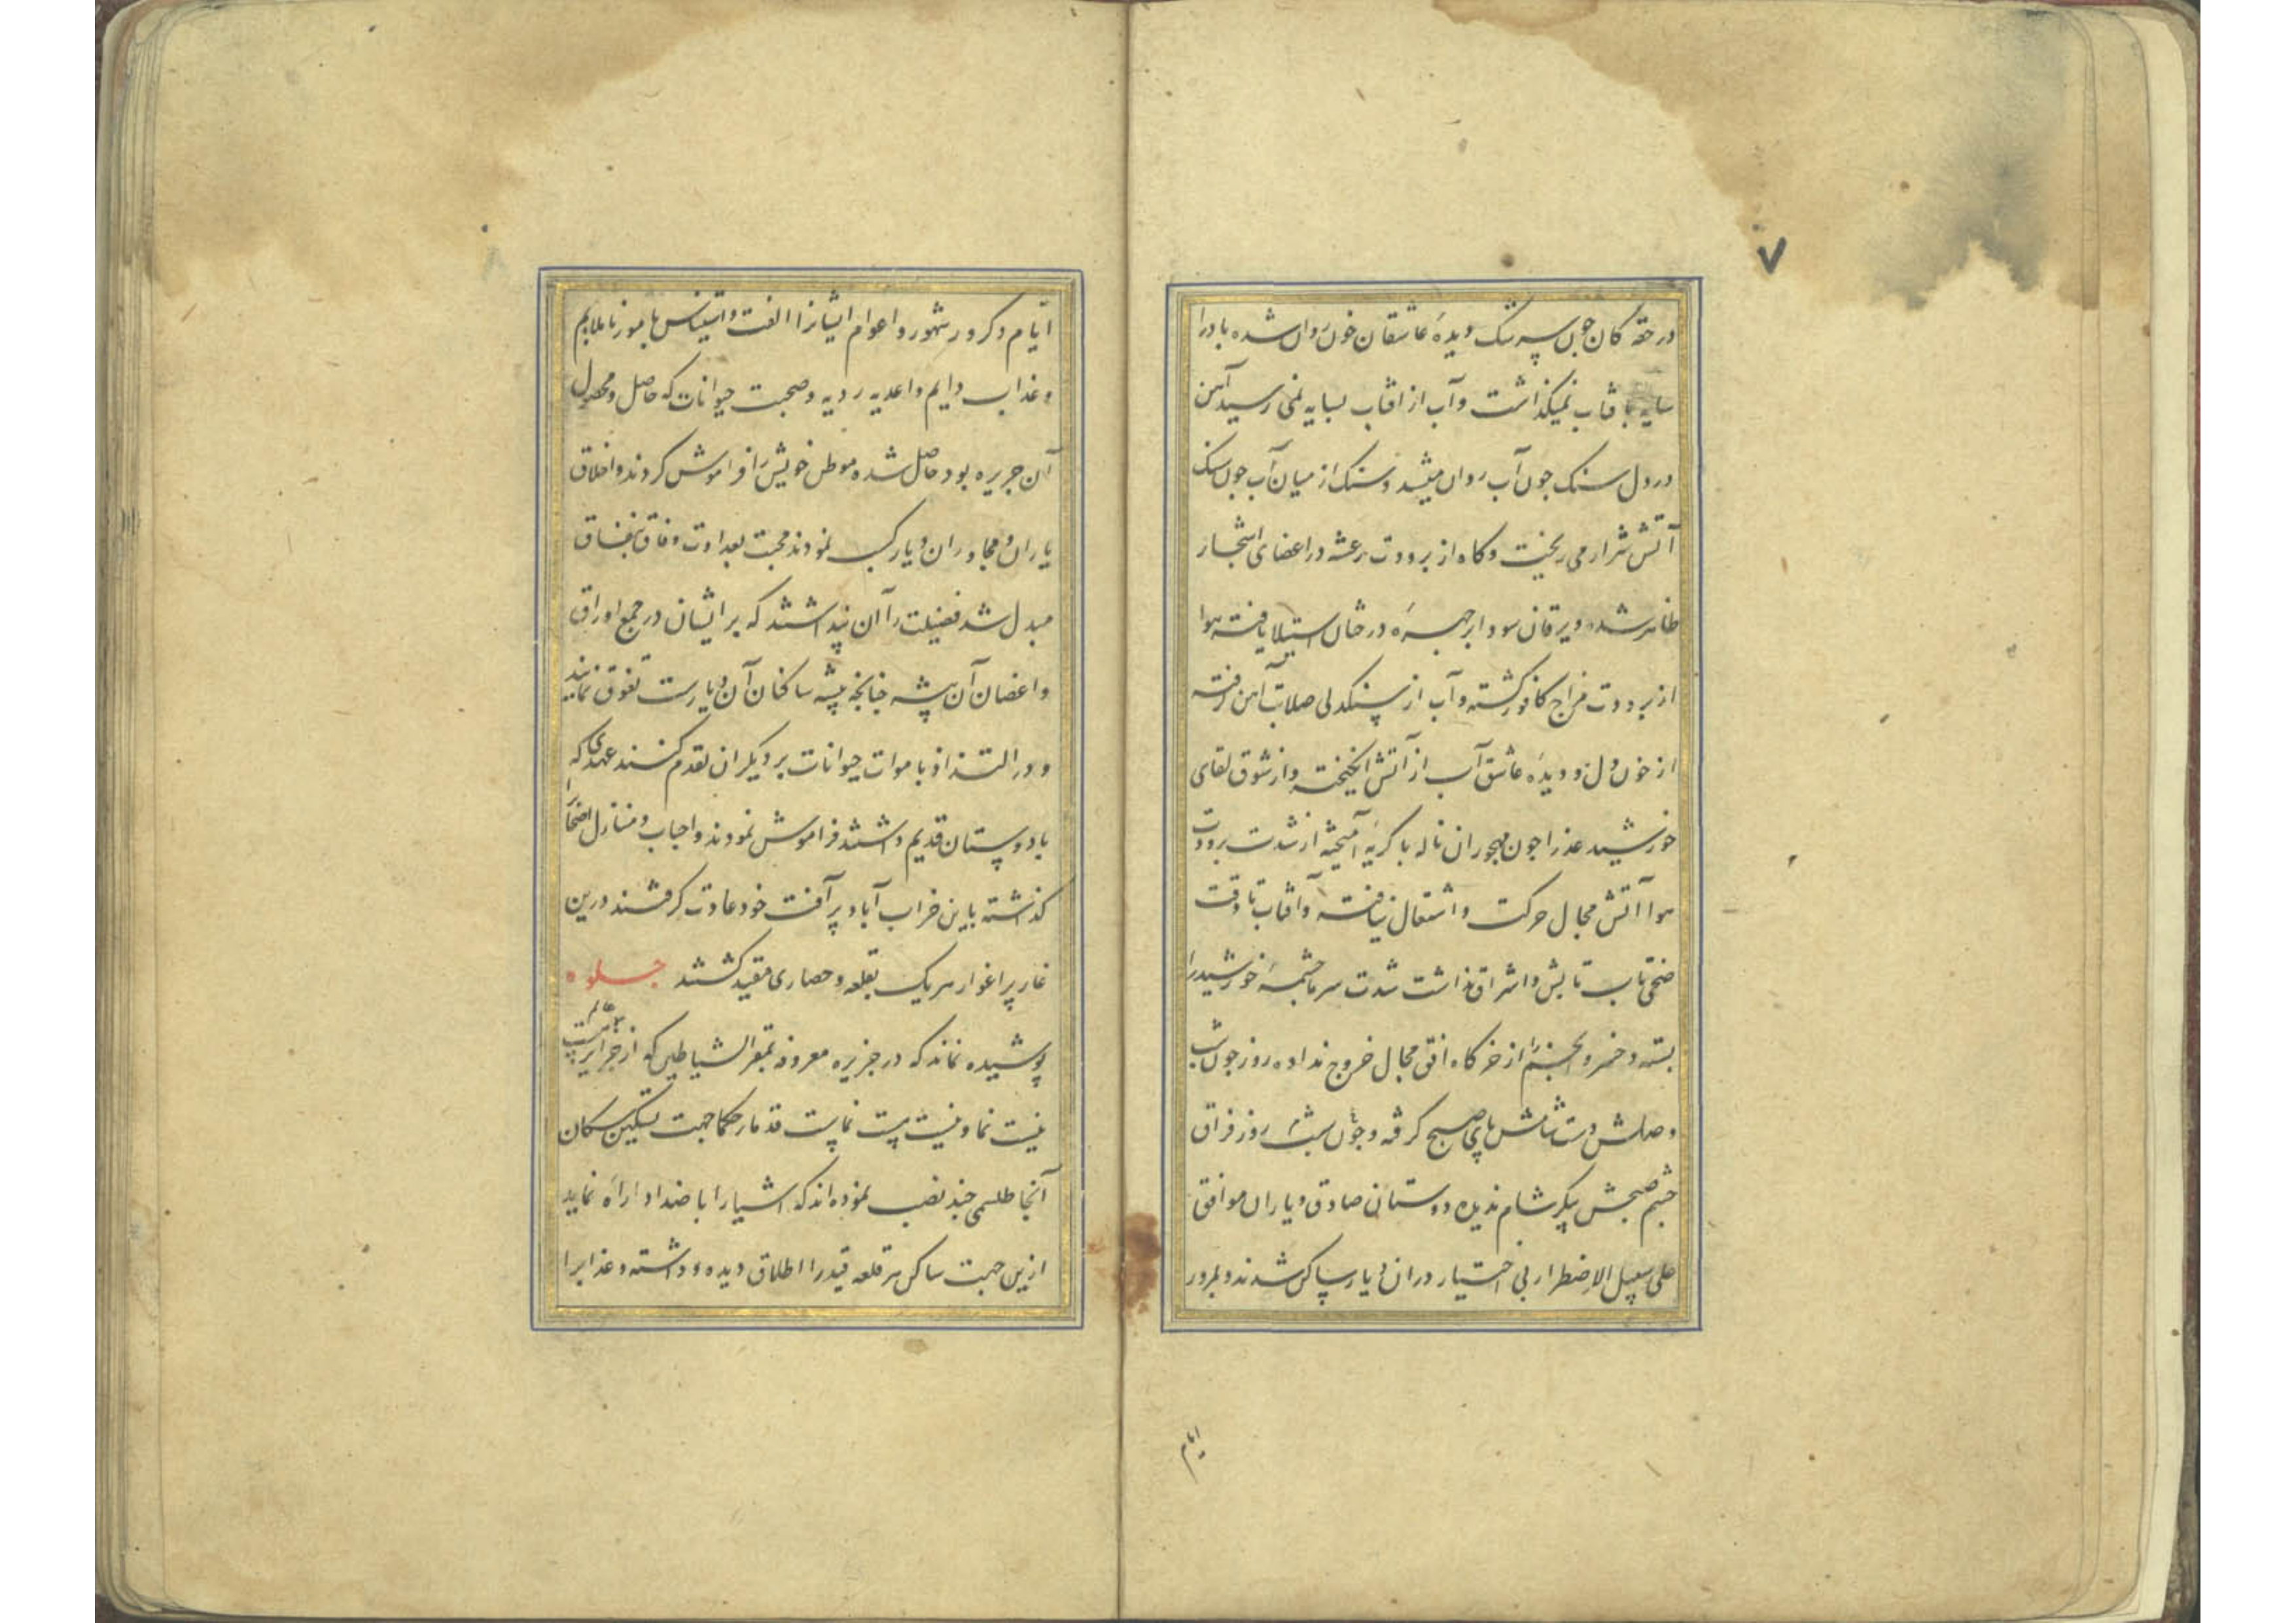 ۷
در حقه کان چون سرشک دیدهٔ عاشقان خون روان شده باد را
سایه بافتاب نمیگذاشت و آب از افتاب بسایه نمی رسید آهن
در دل سنک چون آب روان میشد و سنک از میان آب چون سنک
آتش شرار می ریخت و کاه از برودت رعشه در اعضای اشجار
ظاهر شده و یرقان سودا بر چهرهٔ درختان استیلا یافته هوا
از برودت مزاج کافور کشته و آب از سنکدلی صلابت آهن گرفته
از خون دل و دیدهٔ عاشق آب از آتش انکیخته و از شوق لقای
خورشید عذرا چون مهجوران ناله با کریه آمیخته از شدت برودت
هوا آتش مجال حرکت و اشتعال نیافته و آفتاب تا وقت
ضحی تاب تابش و اشراق نداشت شدت سرما چشمهٔ خورشید را
بسته و خسرو انجم را از خرکاه افق مجال خروج نداده روز چون شب
وصلش دست شامش پای صبح کرفته و چون شب روز فراق
چشم صبحش پیکر شام ندیده دوستان صادق و یاران موافق
علی سبیل الاضطرار بی اختیار در ان دیار ساکن شدند و بمرور
ایام
ایّام و کرور شهور و اعوام ایشانرا الفت و استیناس بامور ناملایم
و عذاب دایم و اعدیه ردیه و صحبت حیوانات که حاصل و محصول
آن جزیره بود حاصل شده موطن خویش را فراموش کردند و اخلاق
یاران و مجاوران دیار کسب نمودند محبت بعداوت وفاق بنفاق
مبدل شد فضیلت را آن پنداشتند که بر ایشان در جمع اوراق
و اغصان آن بیشه چنانچه پیشه ساکنان آن دیارست تفوق نمایند
و در التذاذ باموات حیوانات بر دیکران تقدم کنند عهدی که
با دوستان قدیم داشتند فراموش نمودند و احباب و منازل اصحاب را
کذاشته باین خراب آباد پر آفت خود عادت کرفتند درین
غار پر اغوار هر یک بقلعه و حصاری مقید کشتند جلوه
پوشیده نماند که در جزیره معروفه بمقر الشیاطین که از جزایر عالم
نیست نما و نیست هست نماست قدمای حکما جهت تسکین سکان
آنجا طلسمی چند نصب نموده اند که اشیا را باضداد اراه نماید
ازین جهت ساکن هر قلعه قید را اطلاق دیده و دانسته و عذابرا